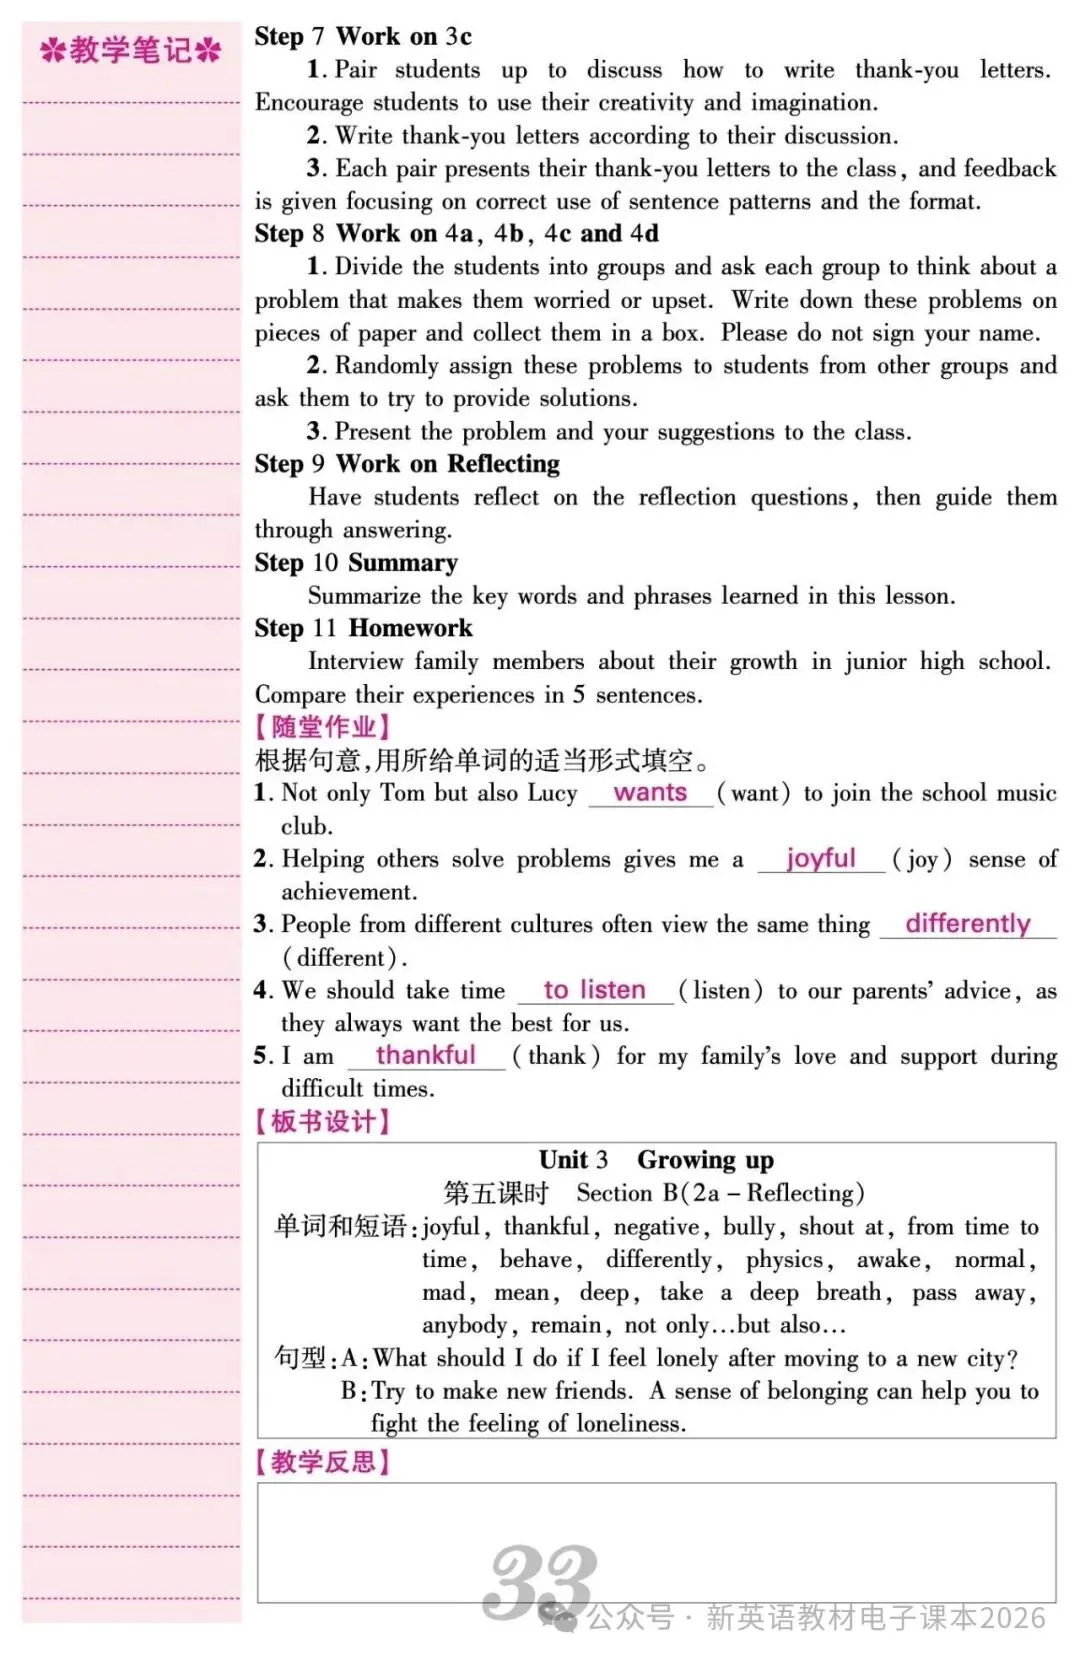 教学笔记
Step 7 Work on 3c
1. Pair students up to discuss how to write thank-you letters.
Encourage students to use their creativity and imagination.
2. Write thank-you letters according to their discussion.
3. Each pair presents their thank-you letters to the class, and feedback
is given focusing on correct use of sentence patterns and the format.
Step 8 Work on 4a, 4b, 4c and 4d
1. Divide the students into groups and ask each group to think about a
problem that makes them worried or upset. Write down these problems on
pieces of paper and collect them in a box. Please do not sign your name.
2. Randomly assign these problems to students from other groups and
ask them to try to provide solutions.
3. Present the problem and your suggestions to the class.
Step 9 Work on Reflecting
Have students reflect on the reflection questions, then guide them
through answering.
Step 10 Summary
Summarize the key words and phrases learned in this lesson.
Step 11 Homework
Interview family members about their growth in junior high school.
Compare their experiences in 5 sentences.
【随堂作业】
根据句意,用所给单词的适当形式填空。
1. Not only Tom but also Lucy wants (want) to join the school music
club.
2. Helping others solve problems gives me a joyful (joy) sense of
achievement.
3. People from different cultures often view the same thing differently
(different).
4. We should take time to listen (listen) to our parents' advice, as
they always want the best for us.
5. I am thankful (thank) for my family's love and support during
difficult times.
【板书设计】
Unit 3 Growing up
第五课时 Section B(2a – Reflecting)
单词和短语:joyful, thankful, negative, bully, shout at, from time to
time, behave, differently, physics, awake, normal,
mad, mean, deep, take a deep breath, pass away,
anybody, remain, not only…but also…
句型:A:What should I do if I feel lonely after moving to a new city?
B:Try to make new friends. A sense of belonging can help you to
fight the feeling of loneliness.
【教学反思】
33
公众号 · 新英语教材电子课本2026